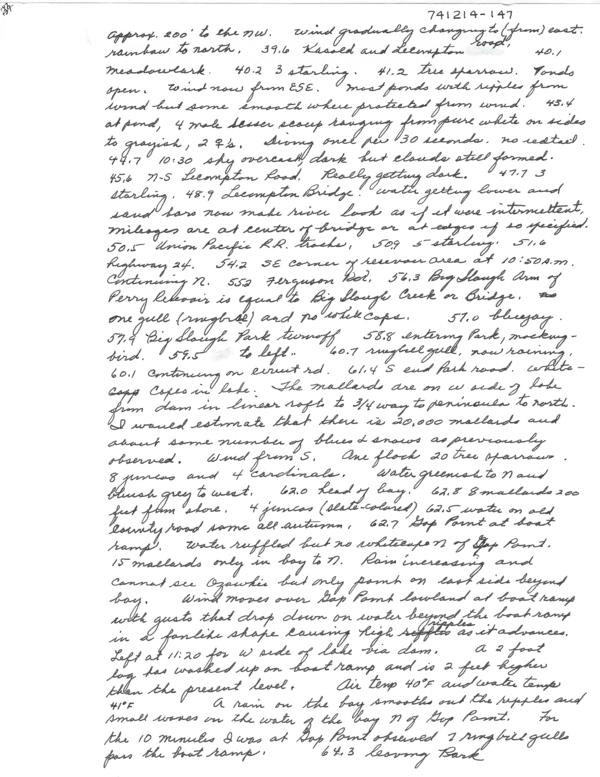 741214-147
approx. 200' to the NW. Wind gradually changing to (from) east.
rainbow to north. 39.6 Kasold and Lecompton road, 40.1
meadowlark. 40.2 3 starling. 41.2 tree sparrow. Ponds
open. Wind now from ESE. Most ponds with ripples from
wind but some smooth where protected from wind. 43.4
at pond, 4 male Lesser scaup ranging from pure white on sides
to grayish, 2 ♀s. Diving once per 30 seconds. no redtail.
44.7 10:30 sky overcast, dark but clouds still formed.
45.6 N-S Lecompton Road. Really getting dark. 47.7 3
starling. 48.9 Lecompton Bridge. Water getting lower and
sand bars now make river look as if it were intermittent,
mileages are at center of bridge or at edges if so specified.
50.5 Union Pacific R.R. tracks, 50.9 5 starling. 51.6
highway 24. 54.2 SE corner of reservoir area at 10:50 A.M.
Continuing N. 55.2 Ferguson Rd. 56.3 Big Slough Arm of
Perry Resevoir is equal to Big Slough Creek or Bridge.
one gull (ringbill) and no white caps. 57.0 bluejay.
57.9 Big Slough Park turnoff 58.8 entering Park, mocking-
bird. 59.5 to left. 60.7 ringbill gull, now raining.
60.1 Continuing on circuit rd. 61.4 S end Park road. White-
caps in lake. The mallards are on W side of lake
from dam in linear raft to 3/4 way to peninsula to north.
I would estimate that there is 20,000 mallards and
about same number of blues & snows as previously
observed. Wind from S. One flock 20 tree sparrows.
8 juncos and 4 cardinals. Water greenish to N and
bluish grey to west. 62.0 head of bay. 62.8 8 mallards 200
feet from shore. 4 juncos (slate-colored) 62.5 water on old
county road same all autumn, 62.7 Gap Point at boat
ramp. Water ruffled but no whitecaps N of Gap Point.
15 mallards only in bay to N. Rain increasing and
cannot see Ozawkie but only point on east side beyond
bay. Wind moves over Gap Point lowland at boat ramp
with gusts that drop down on water beyond the boat ramp
in a fanlike shape causing high ripples as it advances.
Left at 11:20 for W side of lake via dam. A 2 foot
log has washed up on boat ramp and is 2 feet higher
than the present level. Air temp 40°F and water temp
41°F A rain on the bay smooths out the ripples and
small waves on the water of the bay N of Gap Point. For
the 10 minutes I was at Gap Point observed 7 ringbill gulls
pass the boat ramp. 64.3 leaving Park